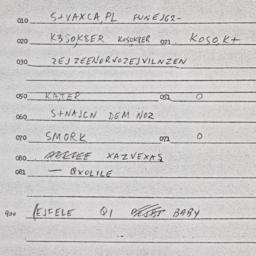 010 S+VAXCA,PL FUNEJG2-
020 K3SOKSER KOSOKSER 021. KOSO,K+
030 ZEJZEENORVOZEJVILNZEN
050 KATER 051 0
060 S+NAJCN DEM NOZ
070 SMORK 071 0
080 XAZVEXAS
081 — QXOLILE
900 QI BABY